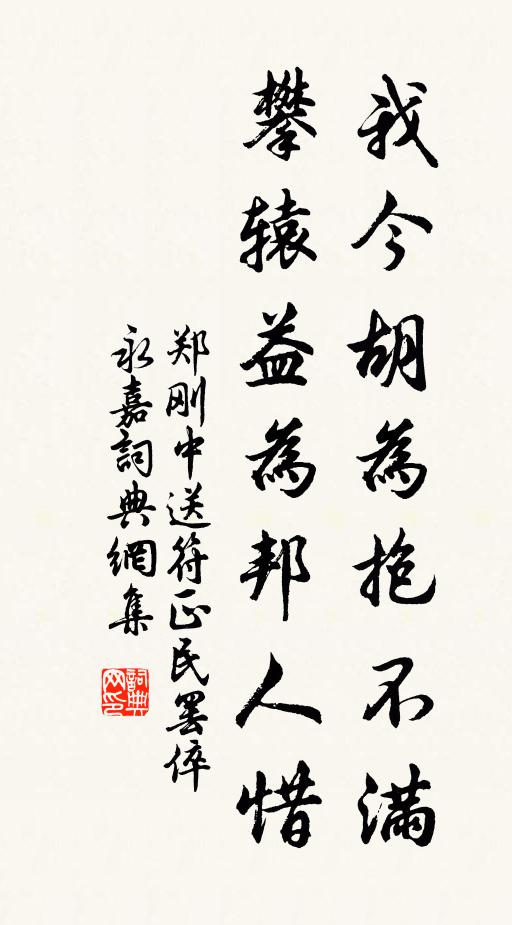 我今胡為抱不滿
攀辕益為邦人惜
郑刚中送符正民罢倅
永嘉詞典網集
詞典网印